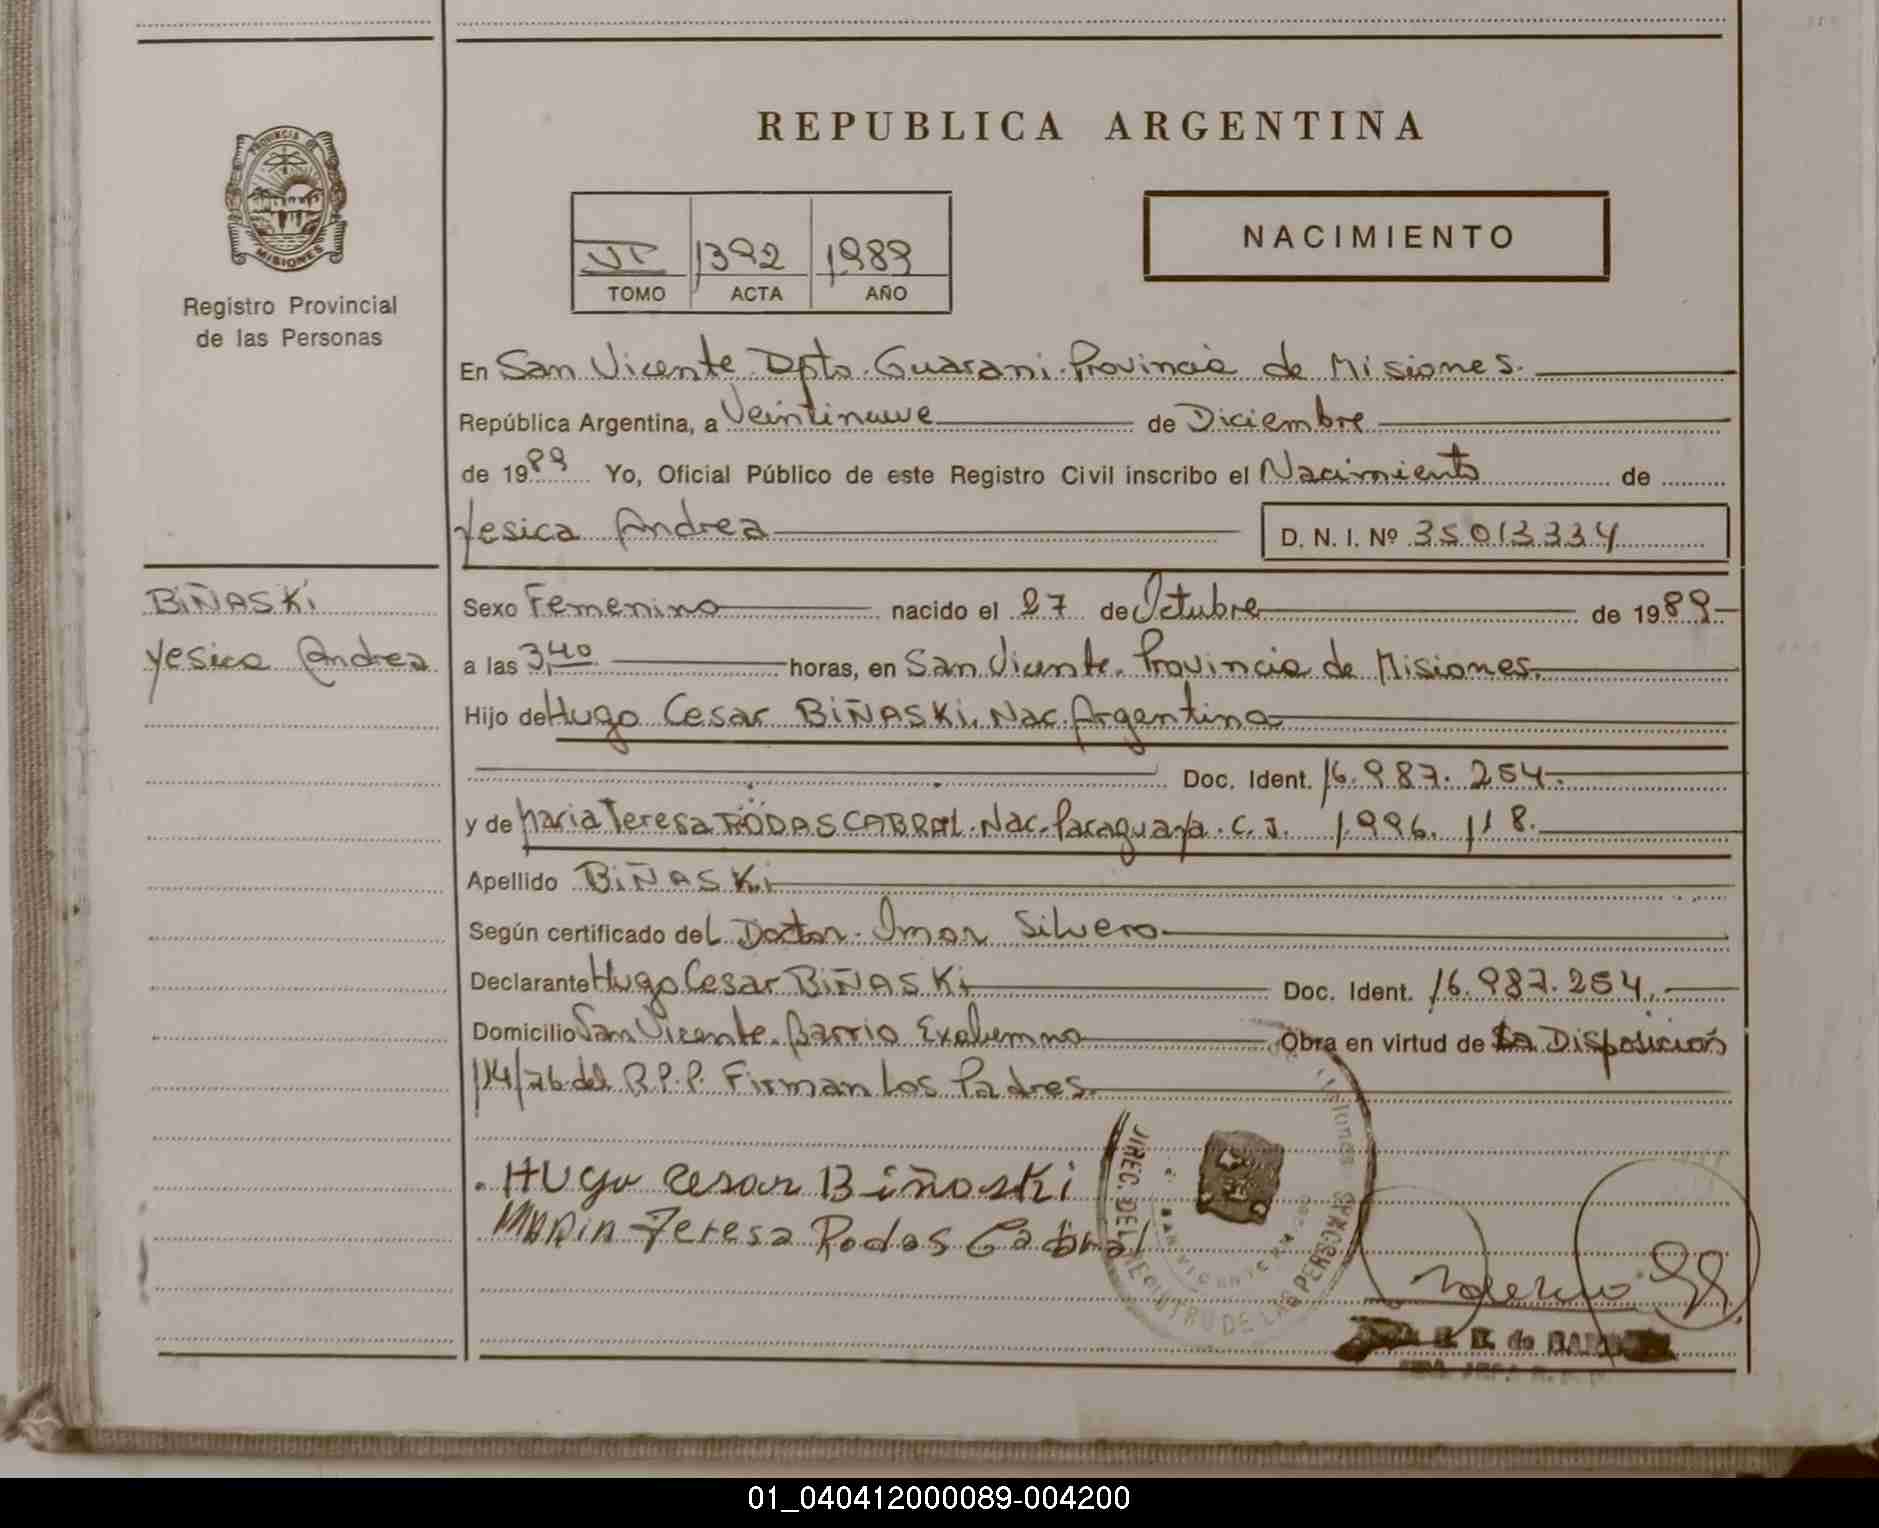 REPUBLICA ARGENTINA
PROVINCIA DE MISIONES
Registro Provincial
de las Personas
VI 1392 1989
TOMO ACTA AÑO
NACIMIENTO
En San Vicente Dpto. Guarani. Provincia de Misiones.
República Argentina, a Veintinueve de Diciembre
de 1989 Yo, Oficial Público de este Registro Civil inscribo el Nacimiento de
Yesica Andrea D. N. I. Nº 35013334
BIÑASKi
Yesica Andrea
Sexo Femenino nacido el 27 de Octubre de 1989
a las 3,40 horas, en San Vicente. Provincia de Misiones.
Hijo de Hugo Cesar BIÑASKi. Nac. Argentina
Doc. Ident. 16.987.254.
y de Maria Teresa RODAS CABRAL. Nac. Paraguaya. C.I. 1.996.118.
Apellido BIÑASKi
Según certificado del Doctor. Omar Silvero
Declarante Hugo Cesar BIÑASKi Doc. Ident. 16.987.254.
Domicilio San Vicente. Barrio Exalumno Obra en virtud de La Disposición
114/76 del R.P.P. Firman Los Padres.
HUgo Cesar Biñaski
MARIA Teresa Rodas Cabral
DIREC. DEL REGISTRO DE LAS PERSONAS
SAN VICENTE
01_040412000089-004200